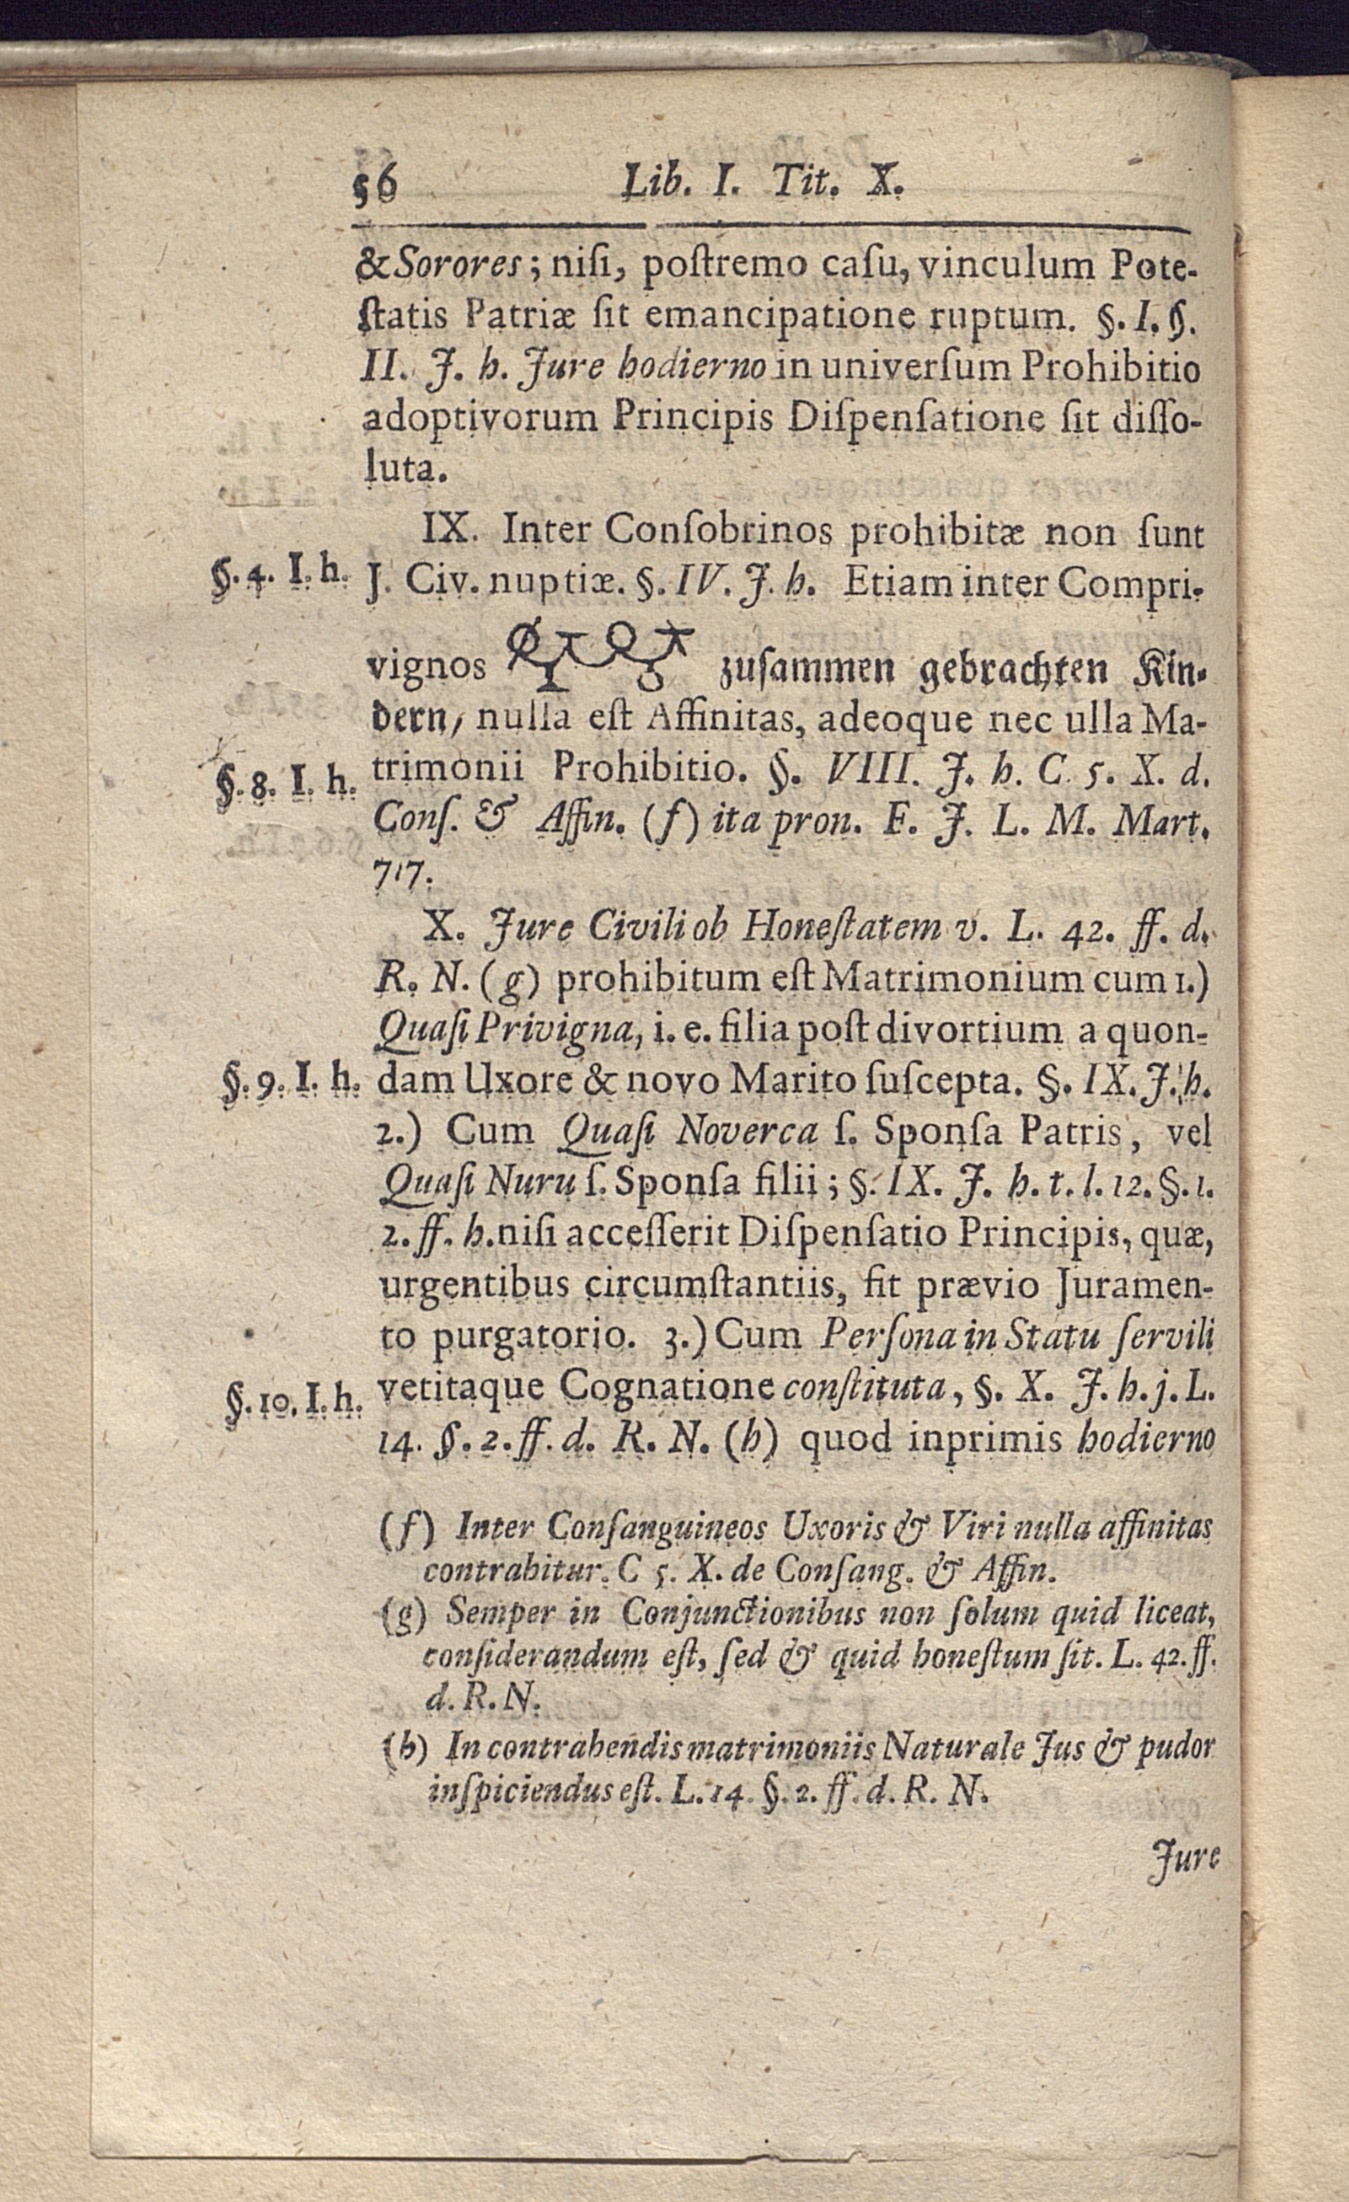 56 Lib. I. Tit. X.
& Sorores; niſi, poſtremo caſu, vinculum Pote-
ſtatis Patriæ ſit emancipatione ruptum. §. I. §.
II. J. h. Jure hodierno in univerſum Prohibitio
adoptivorum Principis Diſpenſatione ſit diſſo-
luta.
IX. Inter Conſobrinos prohibitæ non ſunt
§. 4. I. h. J. Civ. nuptiæ. §. IV. J. h. Etiam inter Compri-
vignos zuſammen gebrachten Kin-
dern, nulla eſt Affinitas, adeoque nec ulla Ma-
§. 8. I. h. trimonii Prohibitio. §. VIII. J. h. C. 5. X. d.
Conſ. & Affin. (f) ita pron. F. J. L. M. Mart.
717.
X. Jure Civili ob Honeſtatem v. L. 42. ff. d.
R. N. (g) prohibitum eſt Matrimonium cum 1.)
Quaſi Privigna, i. e. filia poſt divortium a quon-
§. 9. I. h. dam Uxore & novo Marito ſuſcepta. §. IX. J. h.
2.) Cum Quaſi Noverca ſ. Sponſa Patris, vel
Quaſi Nuru ſ. Sponſa filii; §. IX. J. h. t. l. 12. §. 1.
2. ff. h. niſi acceſſerit Diſpenſatio Principis, quæ,
urgentibus circumſtantiis, fit prævio Juramen-
to purgatorio. 3.) Cum Perſona in Statu ſervili
§. 10. I. h. vetitaque Cognatione conſtituta, §. X. J. h. j. L.
14. §. 2. ff. d. R. N. (h) quod inprimis hodierno
(f) Inter Conſanguineos Uxoris & Viri nulla affinitas
contrahitur. C 5. X. de Conſang. & Affin.
(g) Semper in Conjunctionibus non ſolum quid liceat,
conſiderandum eſt, ſed & quid honeſtum ſit. L. 42. ff.
d. R. N.
(h) In contrahendis matrimoniis Naturale Jus & pudor
inſpiciendus eſt. L. 14. §. 2. ff. d. R. N.
Jure